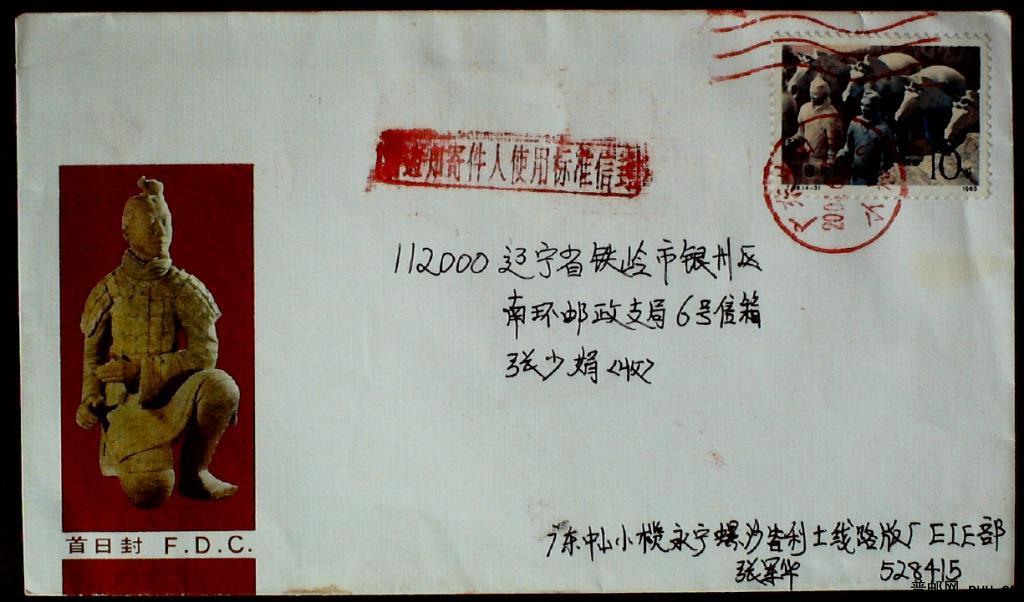 10
1983
通知寄件人使用标准信封
112000 辽宁省铁岭市银州区
南环邮政支局6号信箱
张少娟<收>
首日封 F.D.C.
广东中山小榄永宁螺沙皆利士线路版厂EIE部
张军华 528415
普邮网